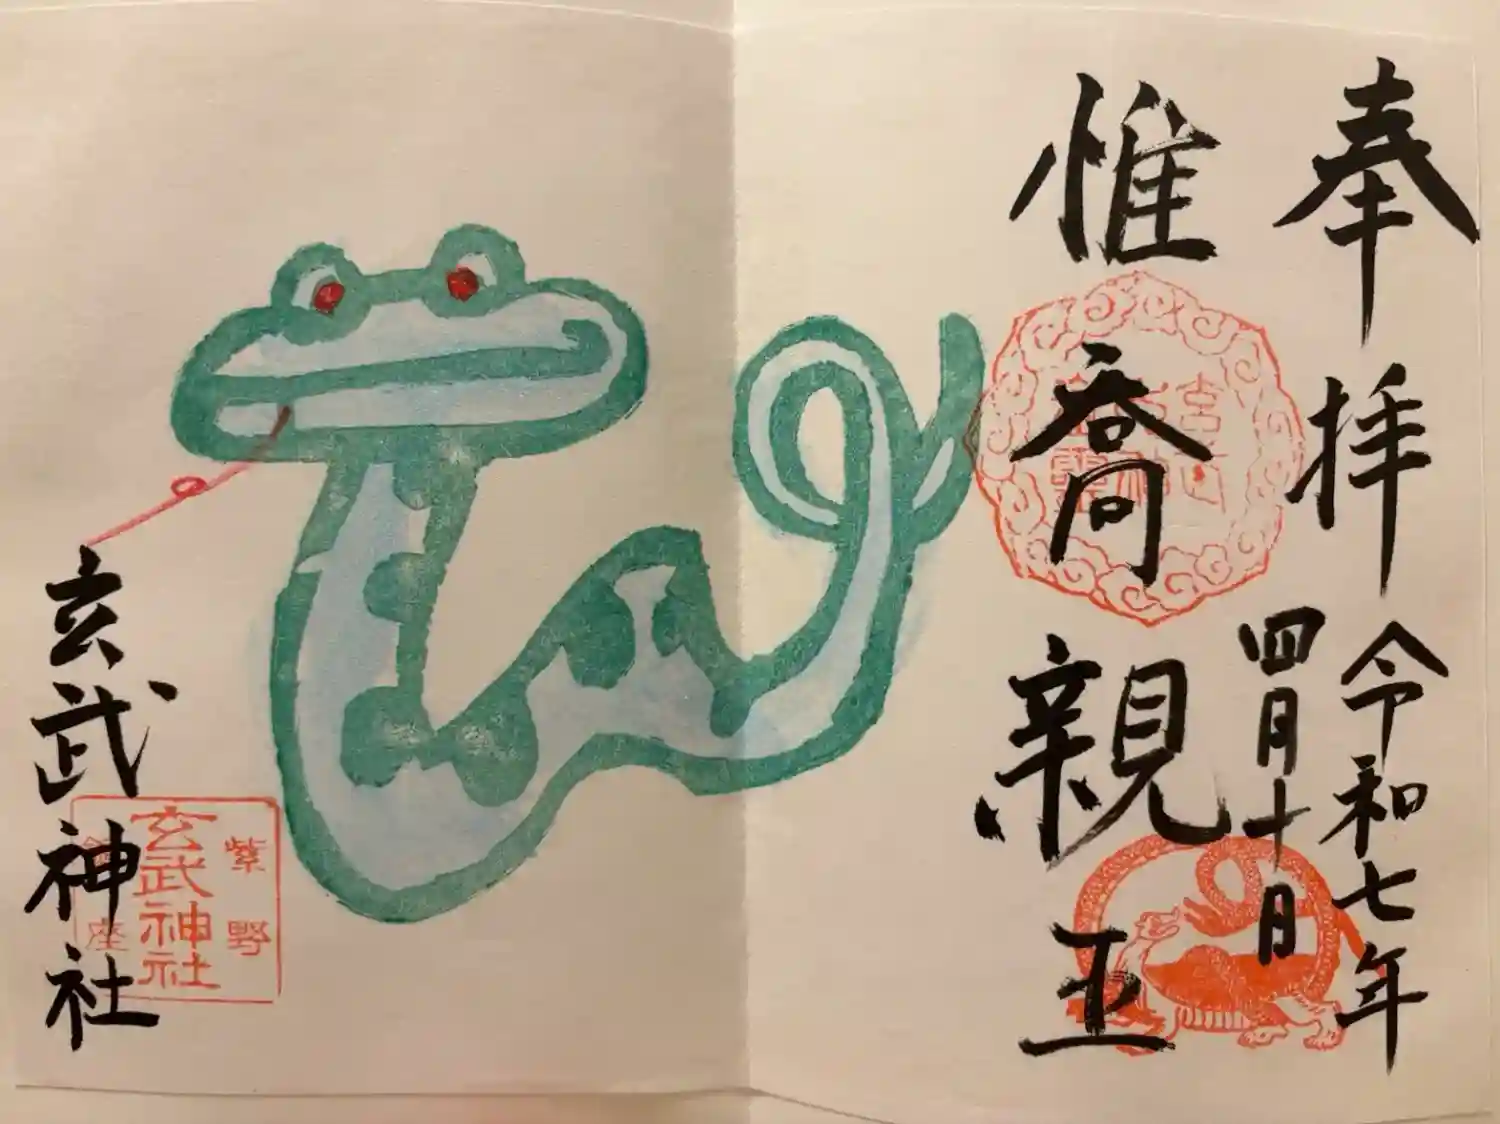 奉拝
令和七年
四月十日
惟喬親王
玄武神社
紫野
玄武神社